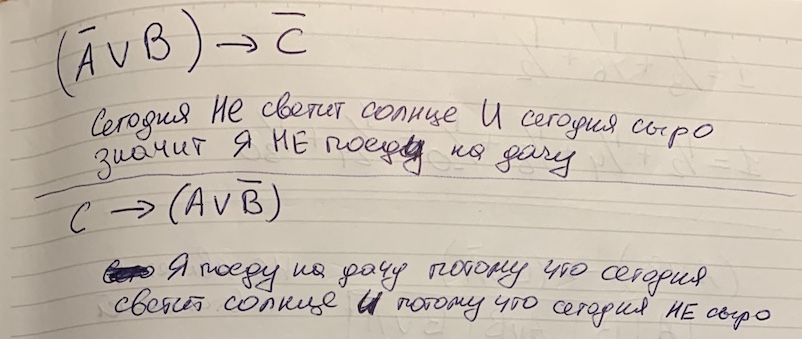 (A̅ ∨ B) → C̅
Сегодня НЕ светит солнце И сегодня сыро
значит Я НЕ поеду на дачу
C → (A ∨ B̅)
Я поеду на дачу потому что сегодня
светит солнце И потому что сегодня НЕ сыро